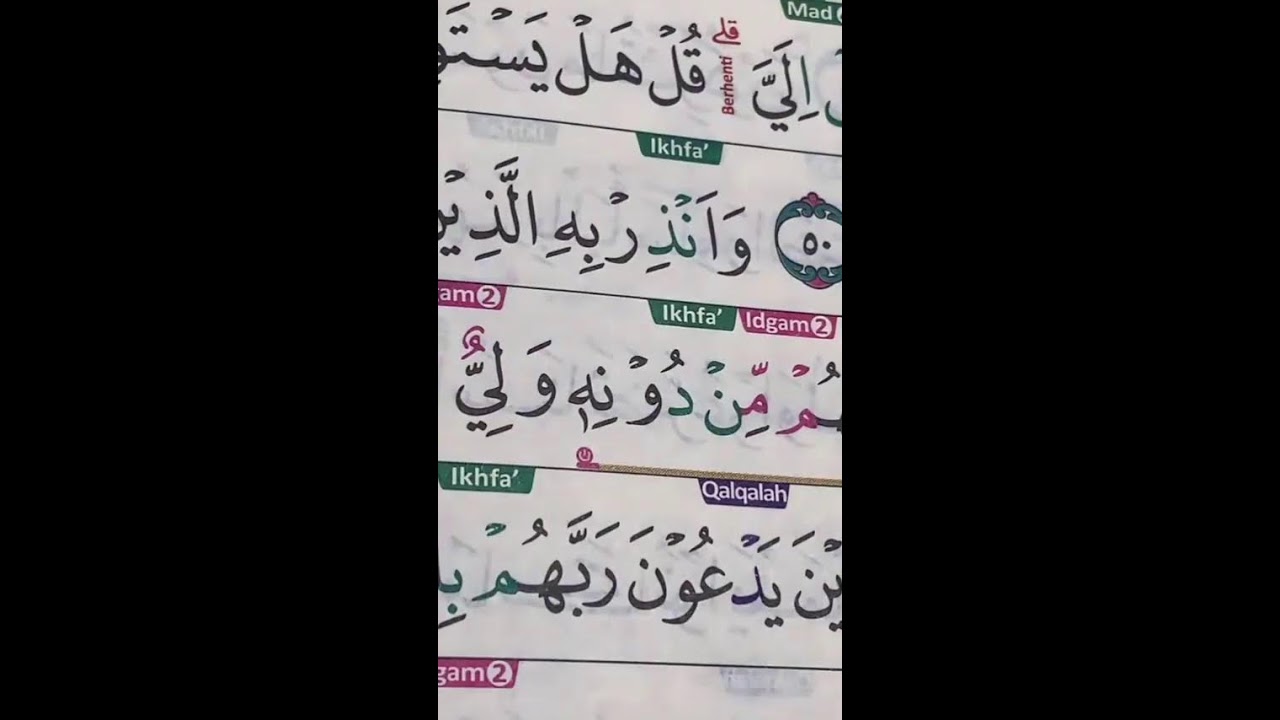 Mad
اِلَيَّ ۗ قُلْ هَلْ يَسْتَ
قلى
Berhenti
Ikhfa’
٥٠ وَاَنْذِرْ بِهِ الَّذِيْ
am2 Ikhfa’ Idgam2
هُمْ مِّنْ دُوْنِهٖ وَلِيٌّ
Ikhfa’ Qalqalah
يْنَ يَدْعُوْنَ رَبَّهُمْ بِ
gam2